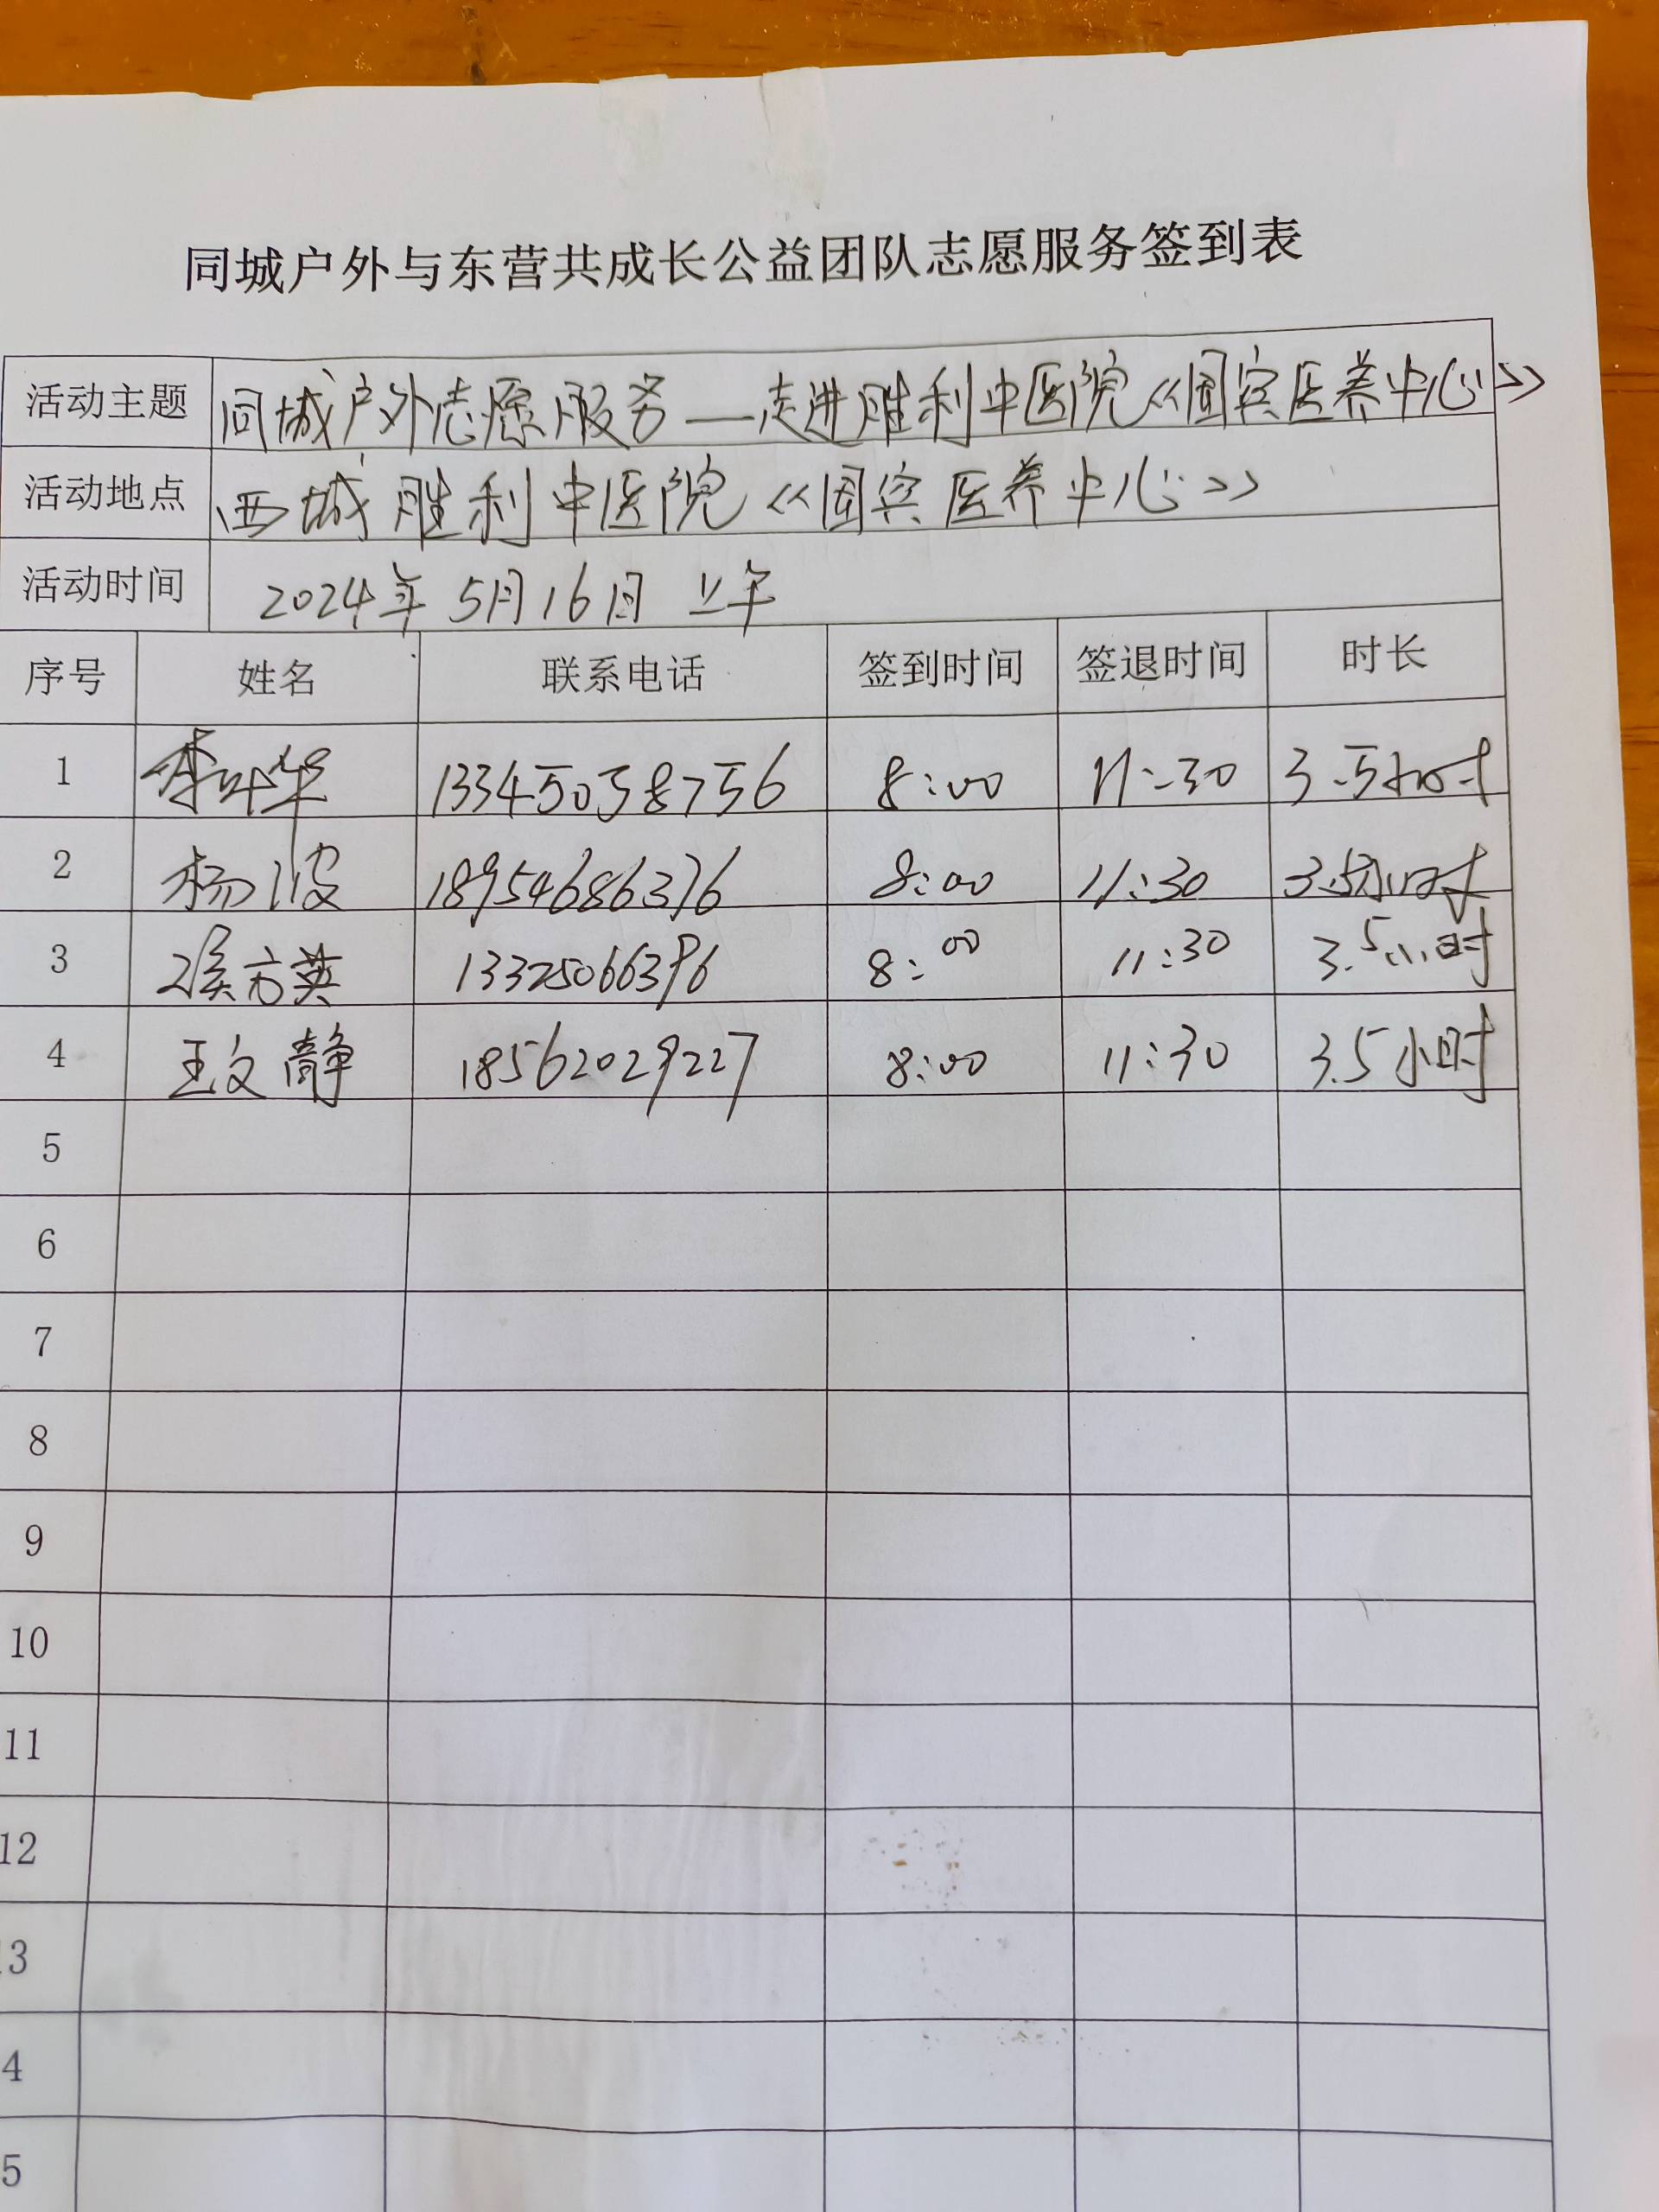 同城户外与东营共成长公益团队志愿服务签到表
活动主题 同城户外志愿服务——走进胜利中医院《国宾医养中心》
活动地点 西城胜利中医院《国宾医养中心》
活动时间 2024年5月16日 上午
序号 姓名 联系电话 签到时间 签退时间 时长
1 李叶华 8:00 11:30 3.5小时
2 杨波 18954686376 8:00 11:30 3.5小时
3 侯方英 13325066396 8:00 11:30 3.5小时
4 王文静 18562029227 8:00 11:30 3.5小时
5
6
7
8
9
10
11
12
13
4
5